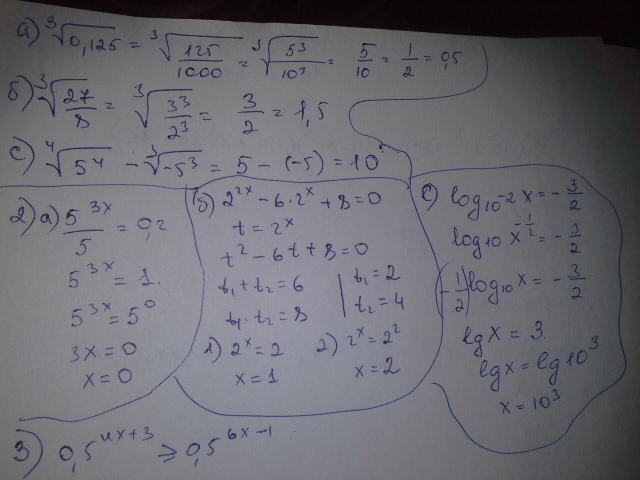 а) ∛0,125 = ∛(125/1000) = ∛(5³/10³) = 5/10 = 1/2 = 0,5
б) ∛(27/8) = ∛(3³/2³) = 3/2 = 1,5
с) ∜5⁴ - ∛-5³ = 5 - (-5) = 10
2) а) 5^(3x)/5 = 0,2
5^(3x) = 1.
5^(3x) = 5⁰
3x = 0
x = 0
б) 2^(2x) - 6·2^x + 8 = 0
t = 2^x
t² - 6t + 8 = 0
t₁ + t₂ = 6
t₁ · t₂ = 8
t₁ = 2
t₂ = 4
1) 2^x = 2
x = 1
2) 2^x = 2²
x = 2
с) log₁₀₋₂ x = - 3/2
log₁₀ x^(-1/2) = - 3/2
(-1/2) log₁₀ x = - 3/2
lg x = 3
lg x = lg 10³
x = 10³
3) 0,5^(4x+3) ≥ 0,5^(6x-1)